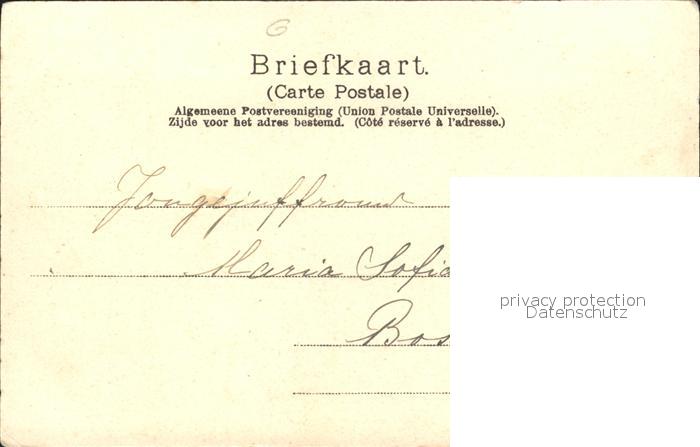 6
Briefkaart.
(Carte Postale)
Algemeene Postvereeniging (Union Postale Universelle).
Zijde voor het adres bestemd. (Côté réservé à l'adresse.)
Jongejuffrouw
Maria Sofia
privacy protection
Datenschutz
Bos